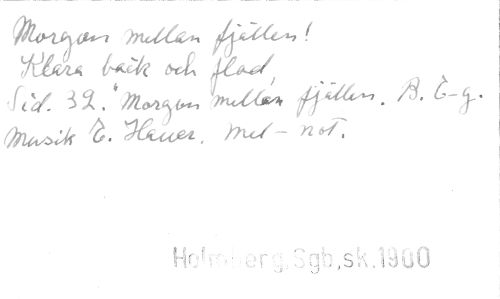 Morgon mellan fjällen!
Klara bäck och flod
Sid. 32. "Morgon mellan fjällen. B. E-g.
Musik E. Hauer. Mel-not.
Holmberg.Sgb,sk.1900